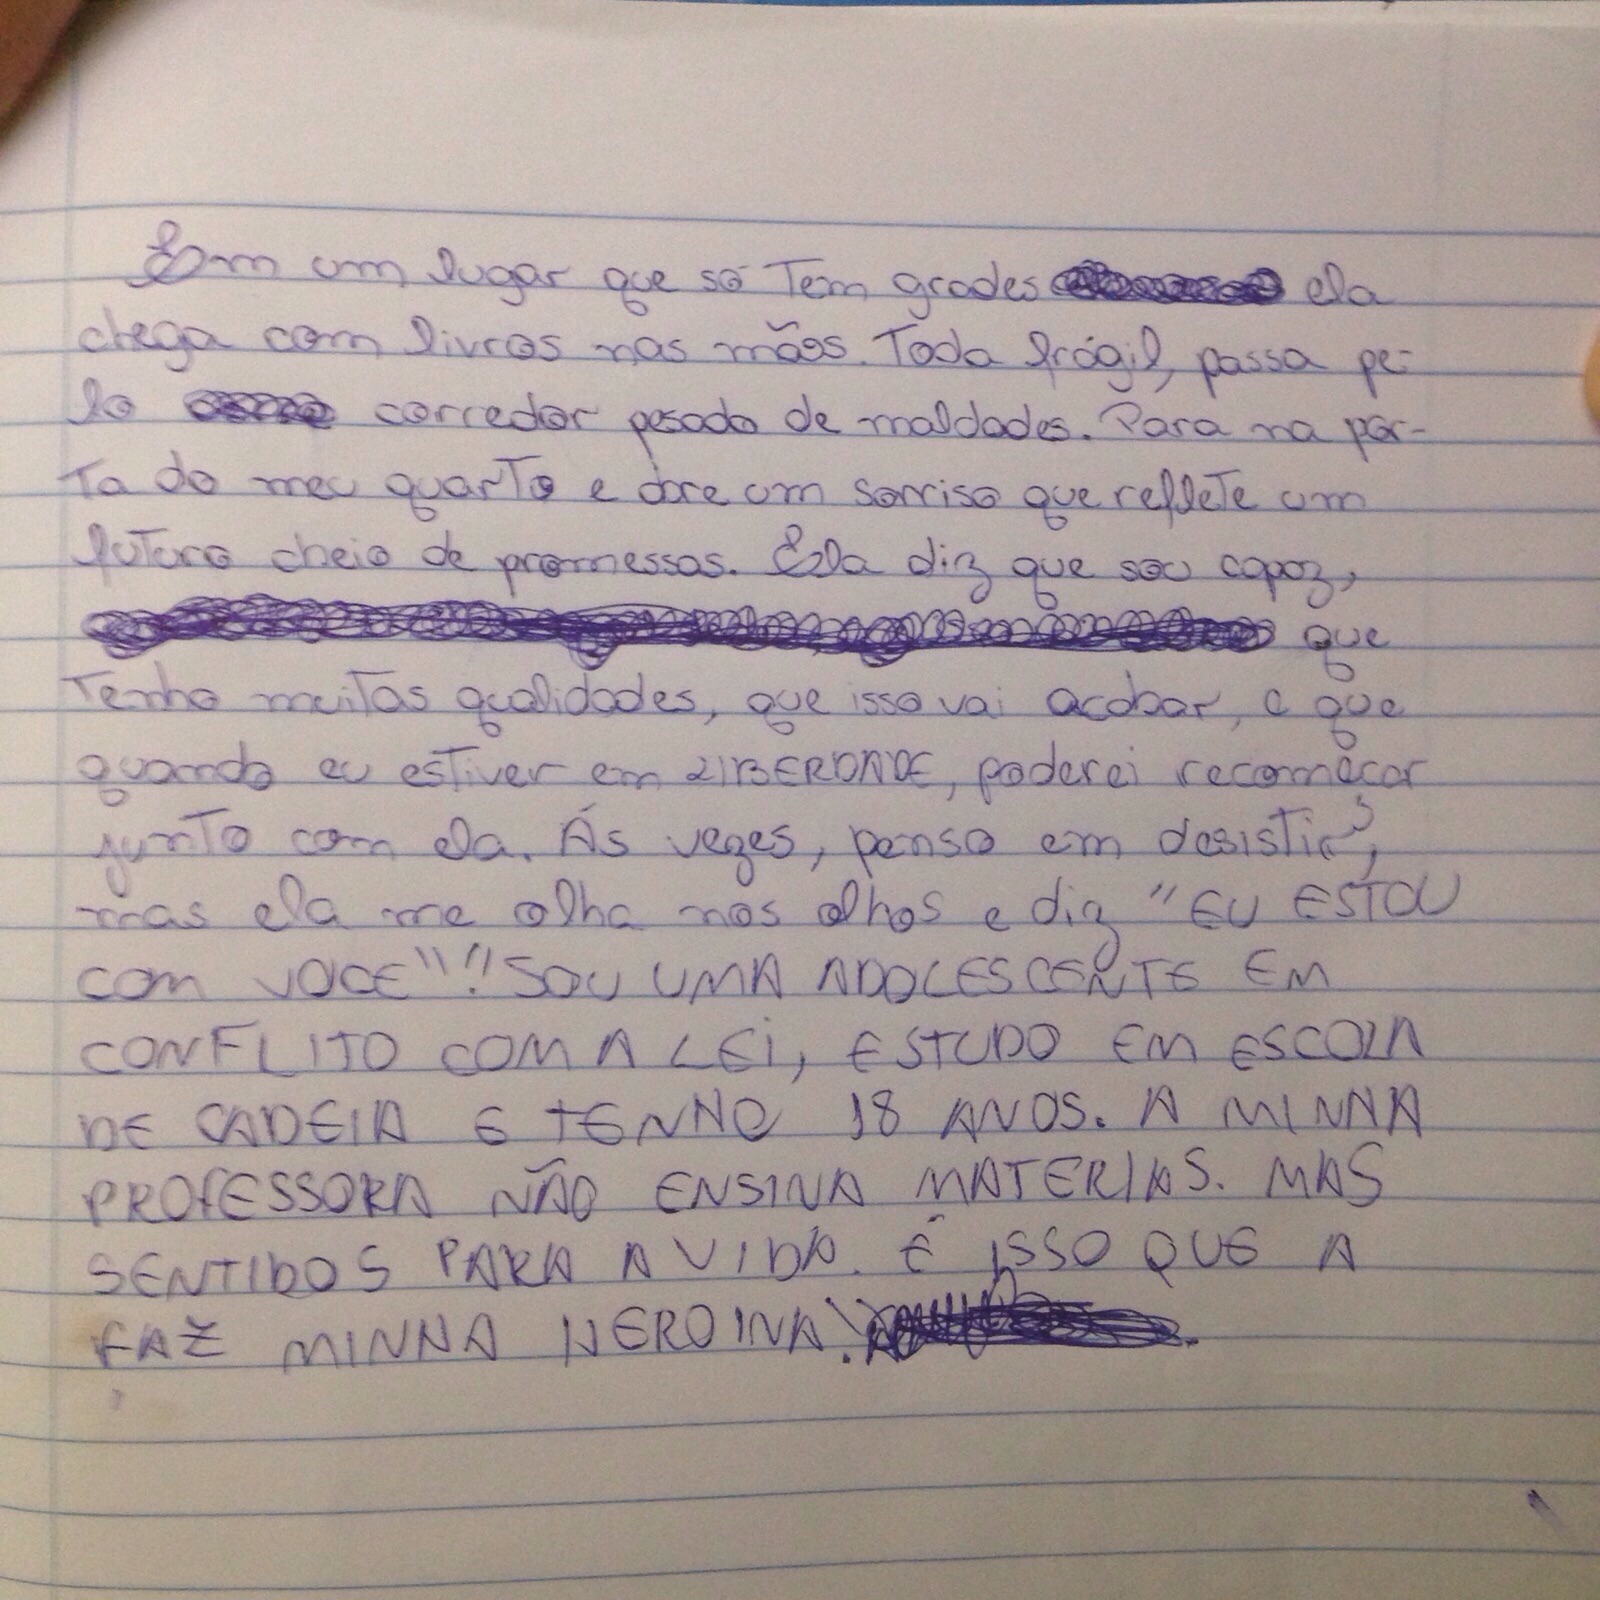 Em um lugar que só Tem grades ela
chega com livros nas mãos. Toda frágil, passa pe-
lo corredor pesado de maldades. Para na por-
Ta do meu quarto e abre um sorriso que reflete um
futuro cheio de promessas. Ela diz que sou capaz,
que
Tenho muitas qualidades, que isso vai acabar, e que
quando eu estiver em LIBERDADE, poderei recomeçar
junto com ela. Ás vezes, penso em desistir,
mas ela me olha nos olhos e diz "EU ESTOU
COM VOCE"! SOU UMA ADOLESCENTE EM
CONFLITO COM A LEI, ESTUDO EM ESCOLA
DE CADEIA E TENHO 18 ANOS. A MINHA
PROFESSORA NÃO ENSINA MATERIAS. MAS
SENTIDOS PARA A VIDA. É ISSO QUE A
FAZ MINHA HEROINA!